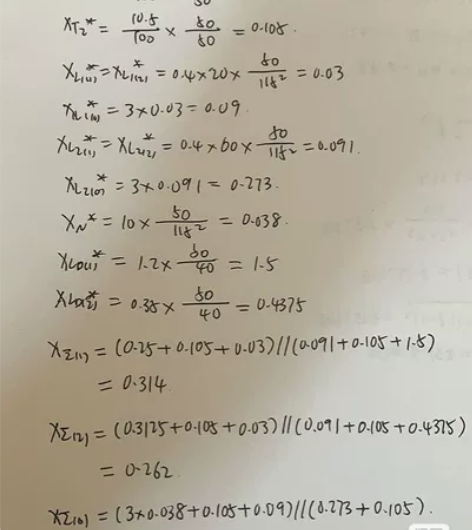 50
X_{T2}^* = \frac{10.5}{100} × \frac{50}{50} = 0.105.
X_{L1(1)}^* = X_{L1(2)}^* = 0.4×20× \frac{50}{115^2} = 0.03
X_{L1(0)}^* = 3×0.03 = 0.09.
X_{L2(1)}^* = X_{L2(2)}^* = 0.4×60× \frac{50}{115^2} = 0.091.
X_{L2(0)}^* = 3×0.091 = 0.273.
X_N^* = 10× \frac{50}{115^2} = 0.038.
X_{LD(1)}^* = 1.2× \frac{50}{40} = 1.5
X_{LD(2)}^* = 0.35× \frac{50}{40} = 0.4375
X_{Σ(1)} = (0.25+0.105+0.03)//(0.091+0.105+1.5)
= 0.314.
X_{Σ(2)} = (0.3125+0.105+0.03)//(0.091+0.105+0.4375)
= 0.262
X_{Σ(0)} = (3×0.038+0.105+0.09)//(0.273+0.105).